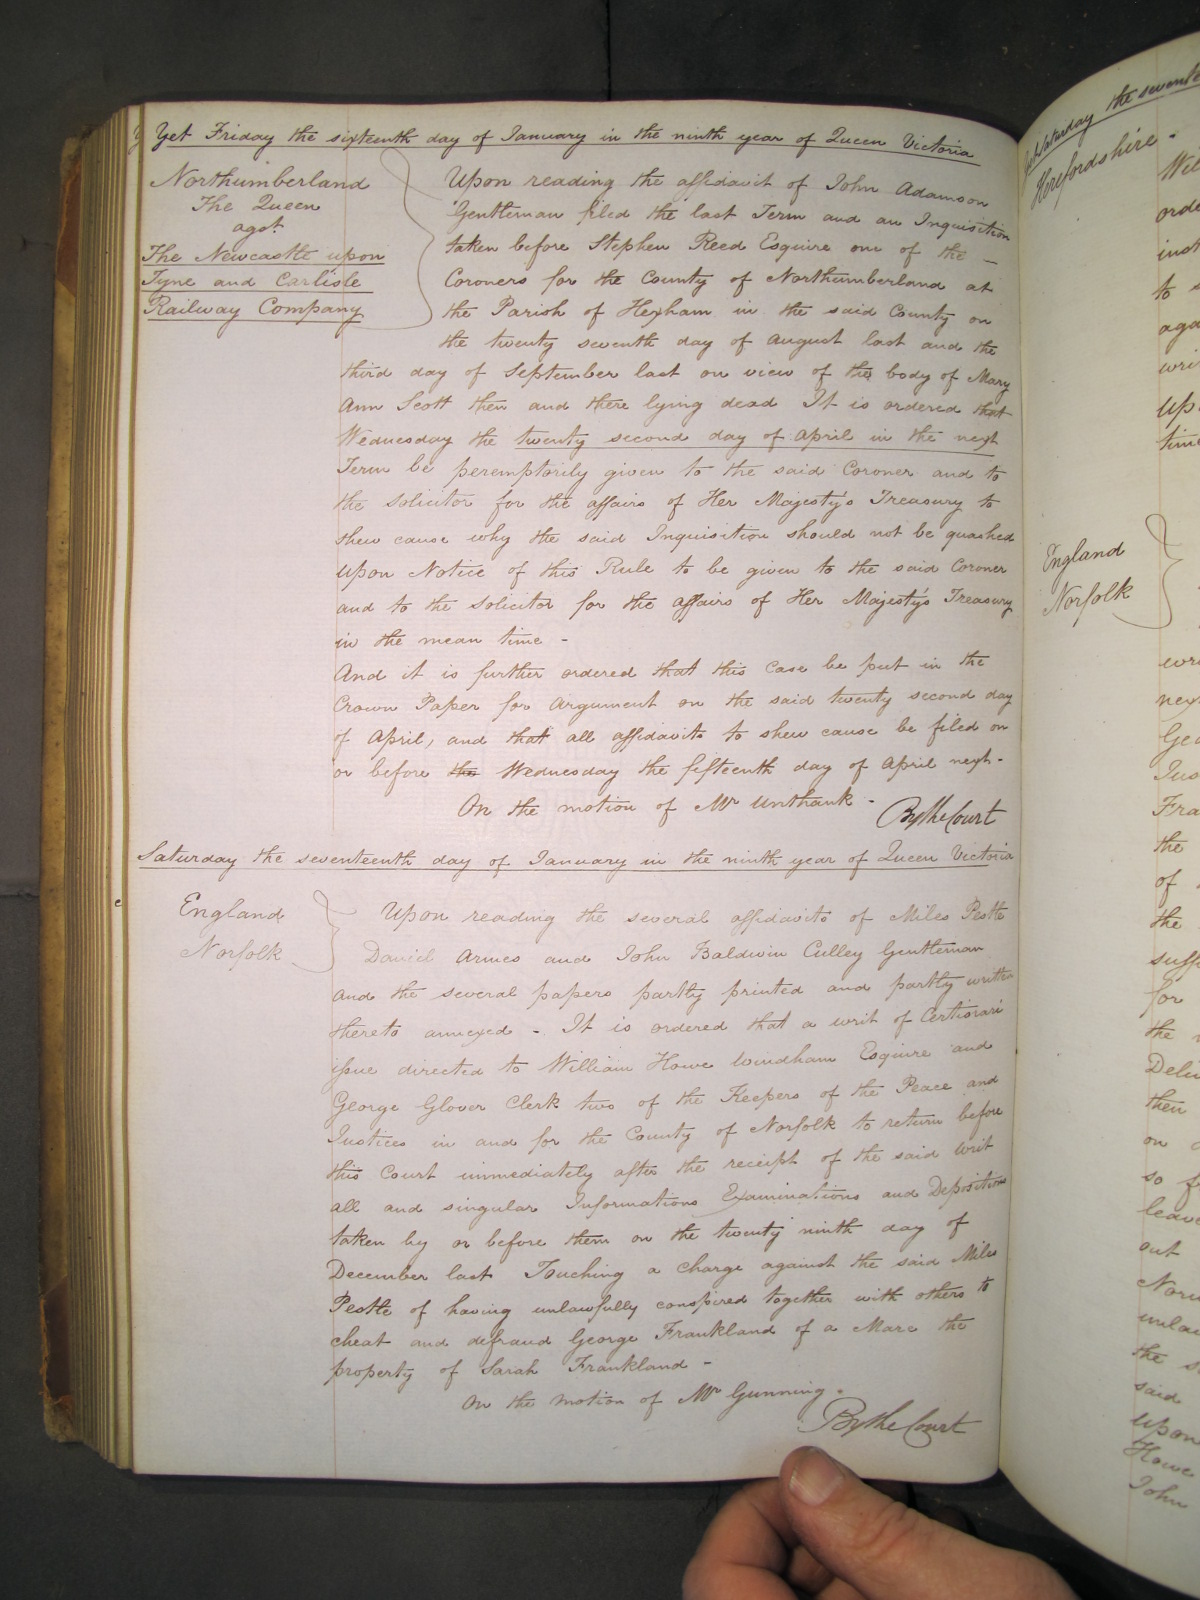 Yet Friday the sixteenth day of January in the ninth year of Queen Victoria
Northumberland
The Queen
agst.
The Newcastle upon
Tyne and Carlisle
Railway Company
Upon reading the affidavit of John Adamson
Gentleman filed the last Term and an Inquisition
taken before Stephen Reed Esquire one of the –
Coroners for the County of Northumberland at
the Parish of Hexham in the said County on
the twenty seventh day of August last and the
third day of September last on view of the body of Mary
Ann Scott then and there lying dead It is ordered that
Wednesday the twenty second day of April in the next
Term be peremptorily given to the said Coroner and to
the Solicitor for the affairs of Her Majesty's Treasury to
shew cause why the said Inquisition should not be quashed
upon Notice of this Rule to be given to the said Coroner
and to the Solicitor for the affairs of Her Majesty's Treasury
in the mean time –
And it is further ordered that this Case be put in the
Crown Paper for Argument on the said twenty second day
of April, and that all affidavits to shew cause be filed on
or before the Wednesday the fifteenth day of April next –
On the motion of Mr Unthank –
By the Court
Saturday the seventeenth day of January in the ninth year of Queen Victoria
England
Norfolk
Upon reading the several affidavits of Miles Pestle
Daniel Armes and John Baldwin Culley Gentleman
and the several papers partly printed and partly written
thereto annexed – It is ordered that a writ of Certiorari
issue directed to William Howe Windham Esquire and
George Glover Clerk two of the Keepers of the Peace and
Justices in and for the County of Norfolk to return before
this Court immediately after the receipt of the said writ
all and singular Informations Examinations and Depositions
taken by or before them on the twenty ninth day of
December last Touching a charge against the said Miles
Pestle of having unlawfully conspired together with others to
cheat and defraud George Frankland of a Mare the
property of Sarah Frankland –
On the motion of Mr Gunning.
By the Court
Saturday the sevent
Herefordshire –
orde
inst
to
aga
writ
up
time
England
Norfolk
wri
next
Geo
Jus
Fra
the
of
the
suff
for
the
Deli
then
on
so f
leave
out
Nor
unla
the s
said
upon
Howe
John